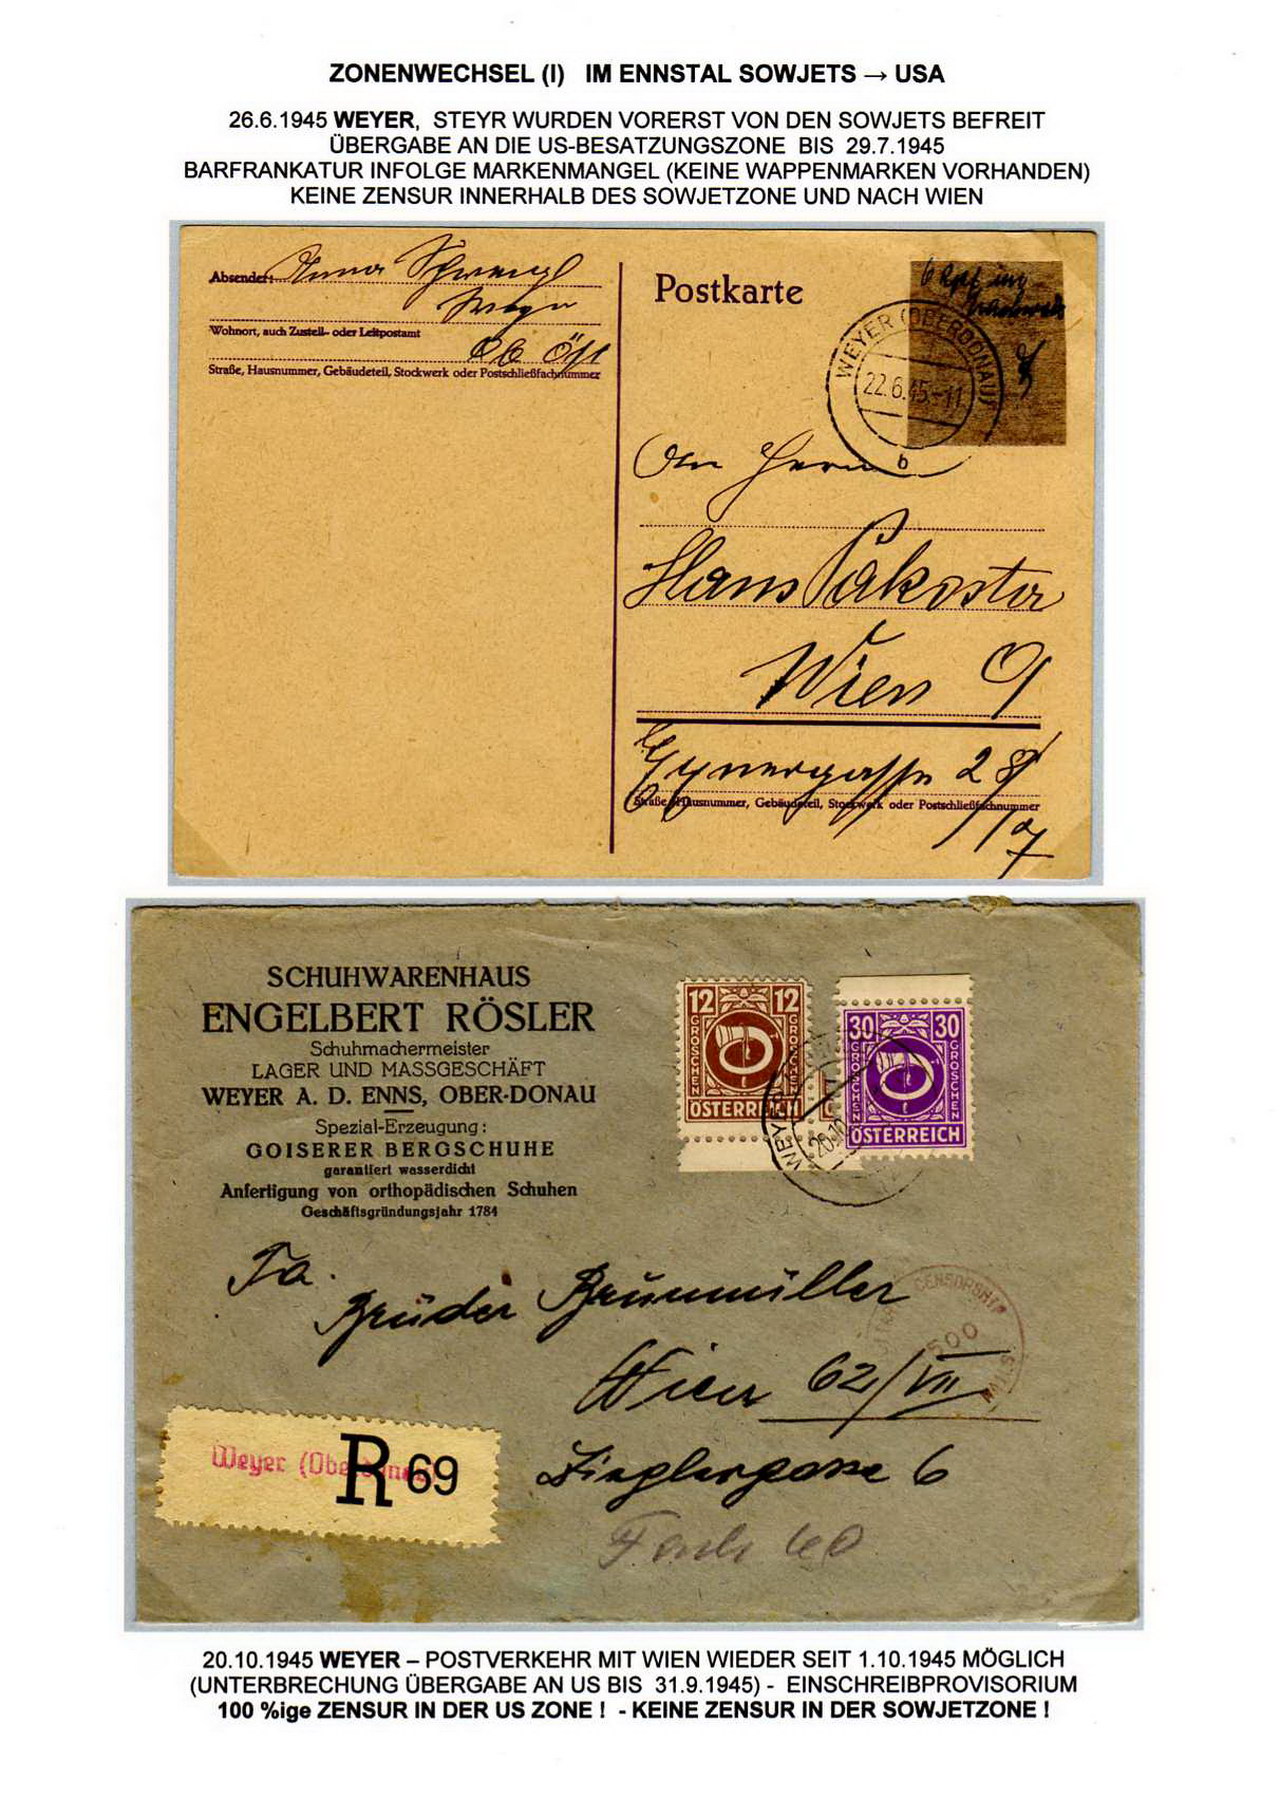 ZONENWECHSEL (I) IM ENNSTAL SOWJETS → USA
26.6.1945 WEYER, STEYR WURDEN VORERST VON DEN SOWJETS BEFREIT
ÜBERGABE AN DIE US-BESATZUNGSZONE BIS 29.7.1945
BARFRANKATUR INFOLGE MARKENMANGEL (KEINE WAPPENMARKEN VORHANDEN)
KEINE ZENSUR INNERHALB DES SOWJETZONE UND NACH WIEN
Absender: Anna
Wohnort, auch Zustell- oder Leitpostamt
Straße, Hausnummer, Gebäudeteil, Stockwerk oder Postschließfachnummer
Postkarte
6 Rpf
WEYER (OBERDONAU)
22.6.45.-11
b
An Herrn
Hans Pakoster
Wien 9
28
Straße, Hausnummer, Gebäudeteil, Stockwerk oder Postschließfachnummer
/17
SCHUHWARENHAUS
ENGELBERT RÖSLER
Schuhmachermeister
LAGER UND MASSGESCHÄFT
WEYER A. D. ENNS, OBER-DONAU
Spezial-Erzeugung:
GOISERER BERGSCHUHE
garantiert wasserdicht
Anfertigung von orthopädischen Schuhen
Geschäftsgründungsjahr 1784
12 12
GROSCHEN GROSCHEN
ÖSTERREICH
30 30
GROSCHEN GROSCHEN
ÖSTERREICH
WEYER
20.10
Fa.
Brüder Brünmüller
CENSORSHIP
500
Wien 62/VII
Zieglergasse 6
Weyer (Oberdonau)
R 69
20.10.1945 WEYER – POSTVERKEHR MIT WIEN WIEDER SEIT 1.10.1945 MÖGLICH
(UNTERBRECHUNG ÜBERGABE AN US BIS 31.9.1945) - EINSCHREIBPROVISORIUM
100 %ige ZENSUR IN DER US ZONE ! - KEINE ZENSUR IN DER SOWJETZONE !